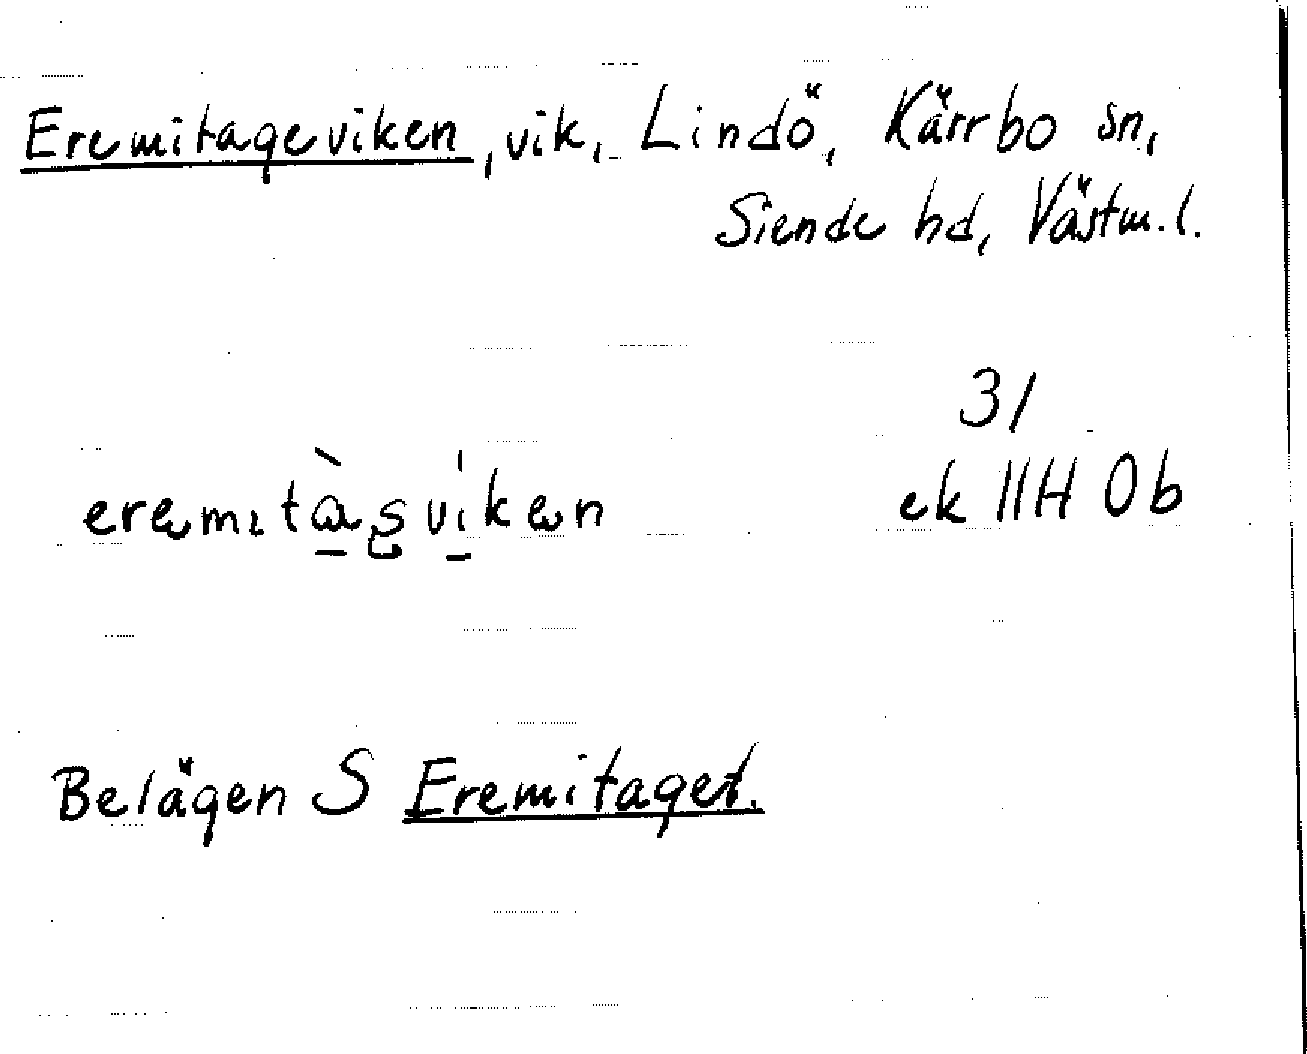 Eremitageviken, vik, Lindö, Kärrbo sn,
Siende hd, Västm. l.
31
eremıtàsvíken ek 11H 0b
Belägen S Eremitaget.